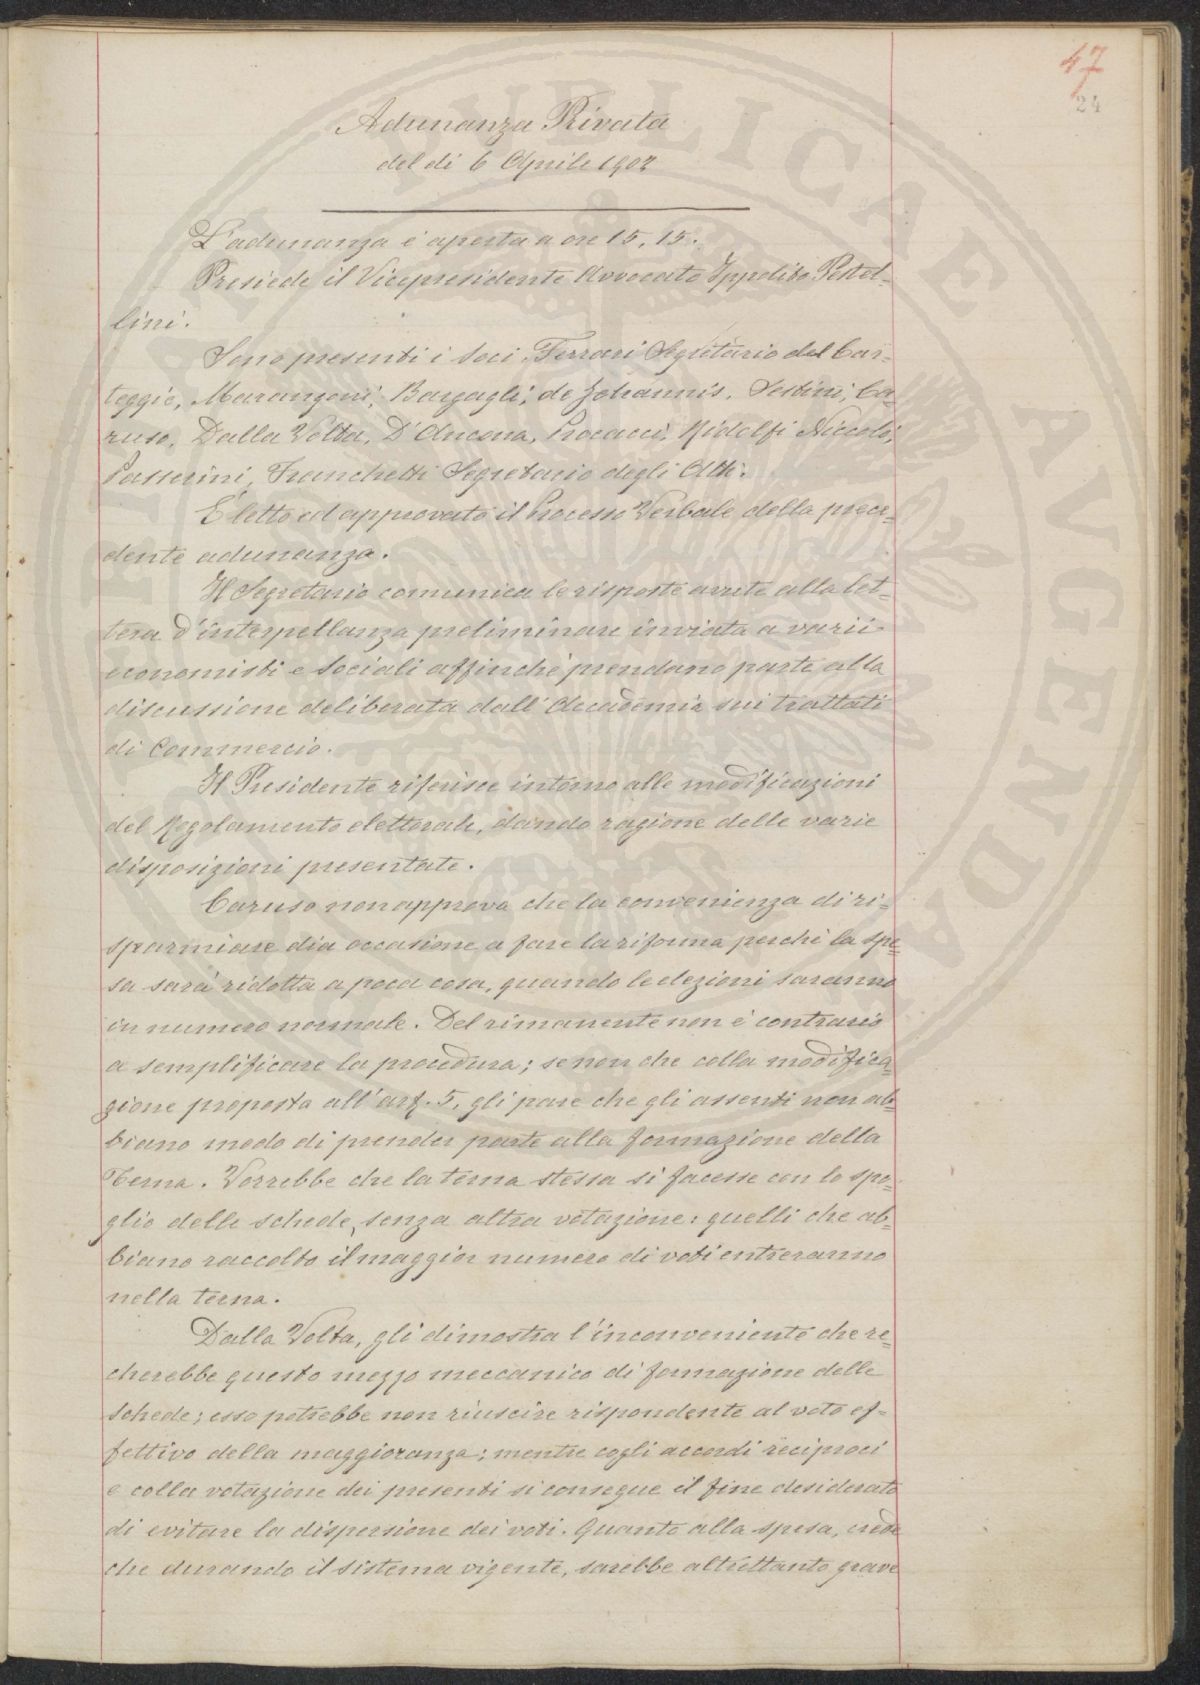 47
24
Adunanza Privata
del di 6 Aprile 1902
L'adunanza è aperta a ore 15,15.
Presiede il Vicepresidente Avvocato Ippolito Pestel-
lini.
Sono presenti i Soci, Ferrari Segretario del Car-
teggio, Marangoni, Bargagli, de Johannis, Sestini, Ca-
ruso, Dalla Volta, D'Ancona, Procacci, Ridolfi Niccolò,
Passerini, Franchetti Segretario degli Atti.
È letto ed approvato il Processo Verbale della prece-
dente adunanza.
Il Segretario comunica le risposte avute alla let-
tera d'interpellanza preliminare inviata a varii
economisti e sociali affinchè prendano parte alla
discussione deliberata dall'Accademia sui trattati
di Commercio.
Il Presidente riferisce intorno alle modificazioni
del Regolamento elettorale, dando ragione delle varie
disposizioni presentate.
Caruso non approva che la convenienza di ri-
sparmiare dia occasione a fare la riforma perchè la spe-
sa sarà ridotta a poca cosa, quando le elezioni saranno
in numero normale. Del rimanente non è contrario
a semplificare la procedura; se non che colla modifica-
zione proposta all'art. 5, gli pare che gli assenti non ab-
biano modo di prender parte alla formazione della
Terna. Vorrebbe che la terna stessa si facesse con lo spo-
glio delle schede, senza altra votazione: quelli che ab-
biano raccolto il maggior numero di voti entreranno
nella terna.
Dalla Volta, gli dimostra l'inconveniente che re-
cherebbe questo mezzo meccanico di formazione delle
schede; esso potrebbe non riuscire rispondente al voto ef-
fettivo della maggioranza; mentre cogli accordi reciproci
e colla votazione dei presenti si consegue il fine desiderato
di evitare la dispersione dei voti. Quanto alla spesa, crede
che durando il sistema vigente, sarebbe altrettanto grave
AVGENDAE PVBLICAE